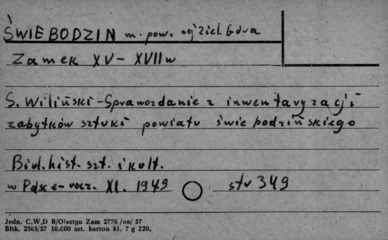 ŚWIEBODZIN m. pow. woj Ziel. Góra
Zamek XV - XVII w
S. Wiliński - Sprawozdanie z inwentaryzacji
zabytków sztuki powiatu świebodzińskiego
Biul. hist. szt. i kult.
w Polsce - rocz. XI. 1949 str 349
Jedn. C.W.D B/Olsztyn Zam 2776 /on/ 57
Bltk. 2563/57 10.000 szt. karton kl. 7 g 220.